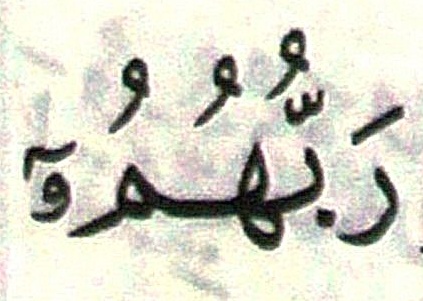 رَبُّهُمُۥٓ